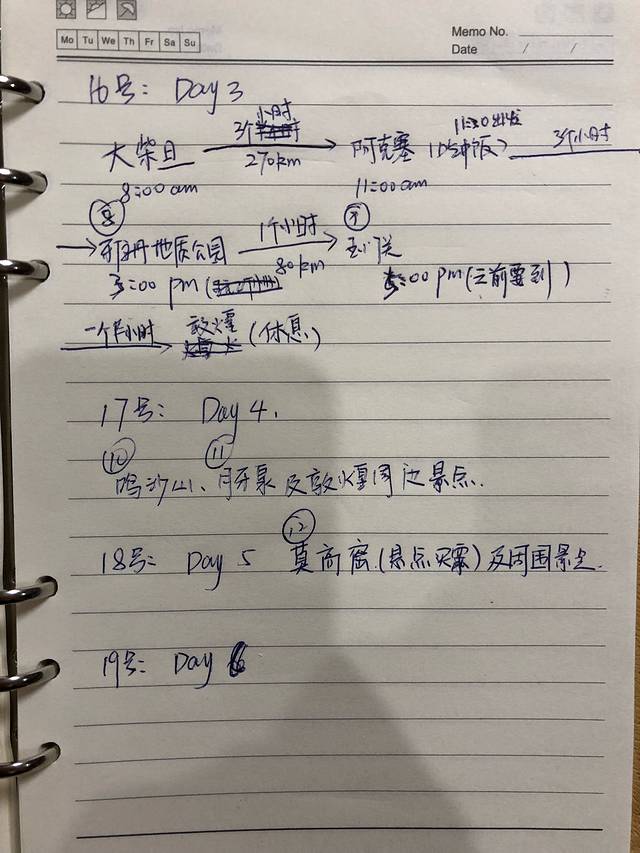 Mo Tu We Th Fr Sa Su
Memo No.
Date / /
16号: Day 3
小时
3个 11:30出发 3个小时
大柴旦 阿克塞 (吃中饭)
270km
8:00am 11:00am
⑧ 1个小时 ⑨
雅丹地质公园
80km
3:00 pm ( 5:00 pm (之前要到)
一个半小时 敦煌 (休息)
17号: Day 4.
⑩ ⑪
鸣沙山、月牙泉及敦煌周边景点.
⑫
18号: Day 5 莫高窟.(景点买票)及周围景点.
19号: Day 6